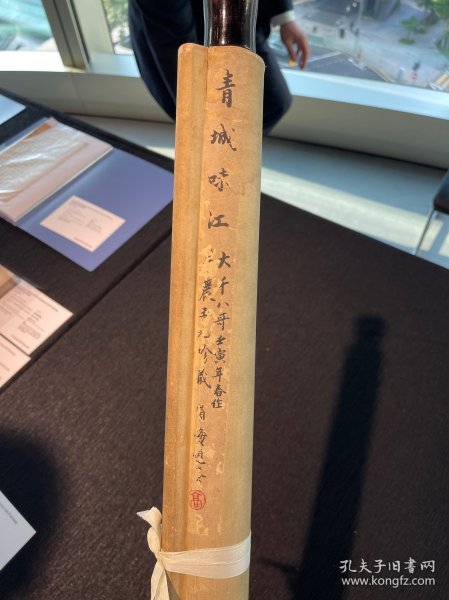 青城味江
大千八哥壬寅年春作
農吾兄珍藏
孔夫子旧书网
www.kongfz.com